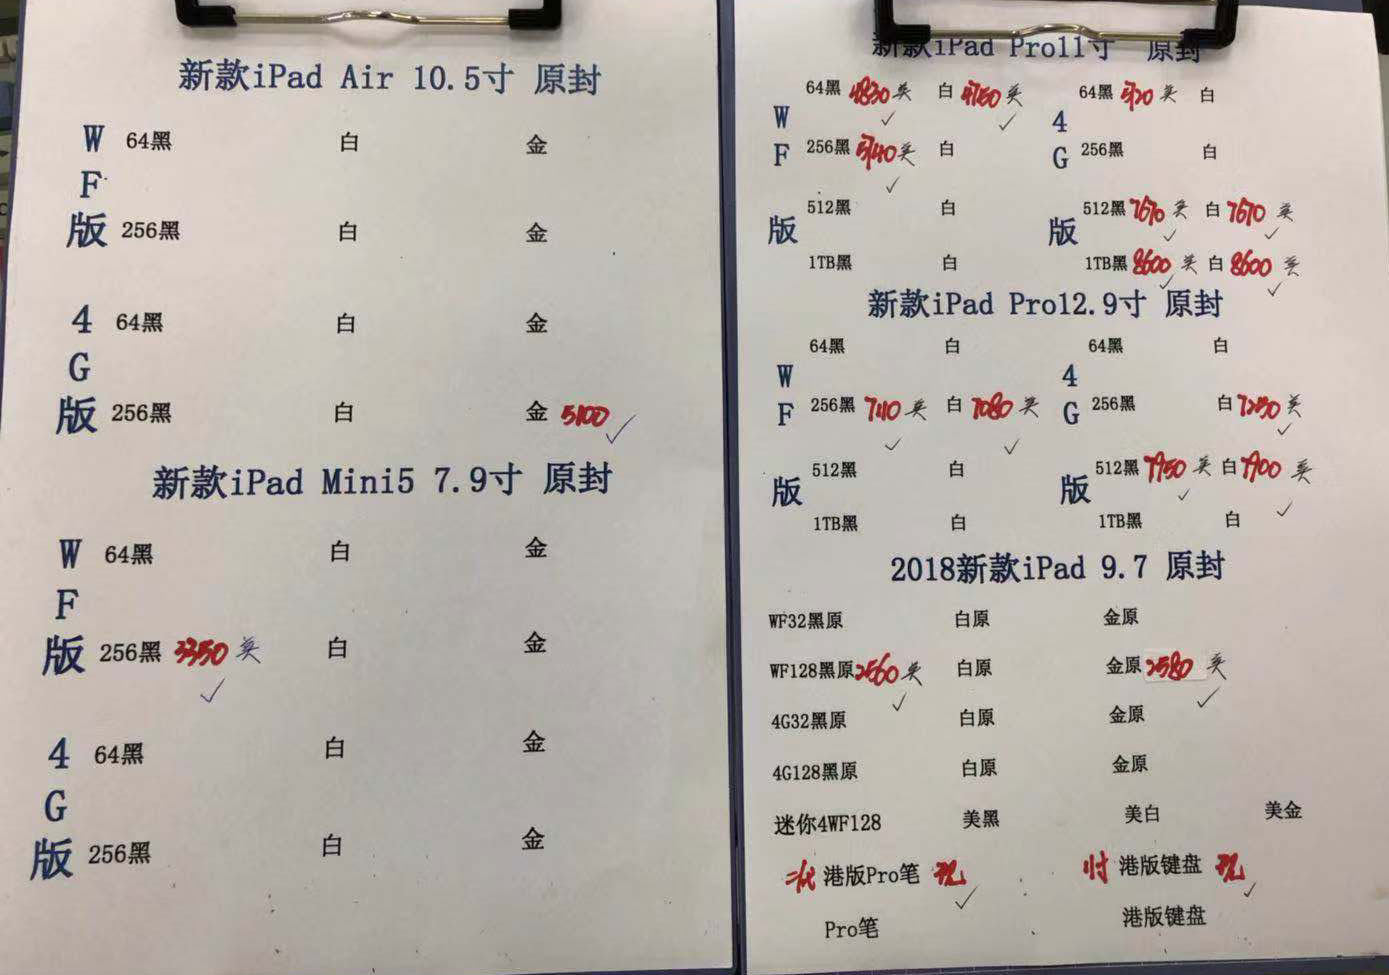 新款iPad Air 10.5寸 原封
WF版
64黑 白 金
256黑 白 金
4G版
64黑 白 金
256黑 白 金 5100
新款iPad Mini5 7.9寸 原封
WF版
64黑 白 金
256黑 3350 美 白 金
4G版
64黑 白 金
256黑 白 金
新款iPad Pro11寸 原封
WF版
64黑 4830 美 白 4760 美
256黑 5740 美 白
512黑 白
1TB黑 白
4G版
64黑 5720 美 白
256黑 白
512黑 7670 美 白 7670 美
1TB黑 8600 美 白 8600 美
新款iPad Pro12.9寸 原封
WF版
64黑 白
256黑 7110 美 白 7080 美
512黑 白
1TB黑 白
4G版
64黑 白
256黑 白 7250 美
512黑 7950 美 白 7900 美
1TB黑 白
2018新款iPad 9.7 原封
WF32黑原 白原 金原
WF128黑原 2560 美 白原 金原 2580 美
4G32黑原 白原 金原
4G128黑原 白原 金原
迷你4WF128 美黑 美白 美金
二代 港版Pro笔 现 11寸 港版键盘 现
Pro笔 港版键盘